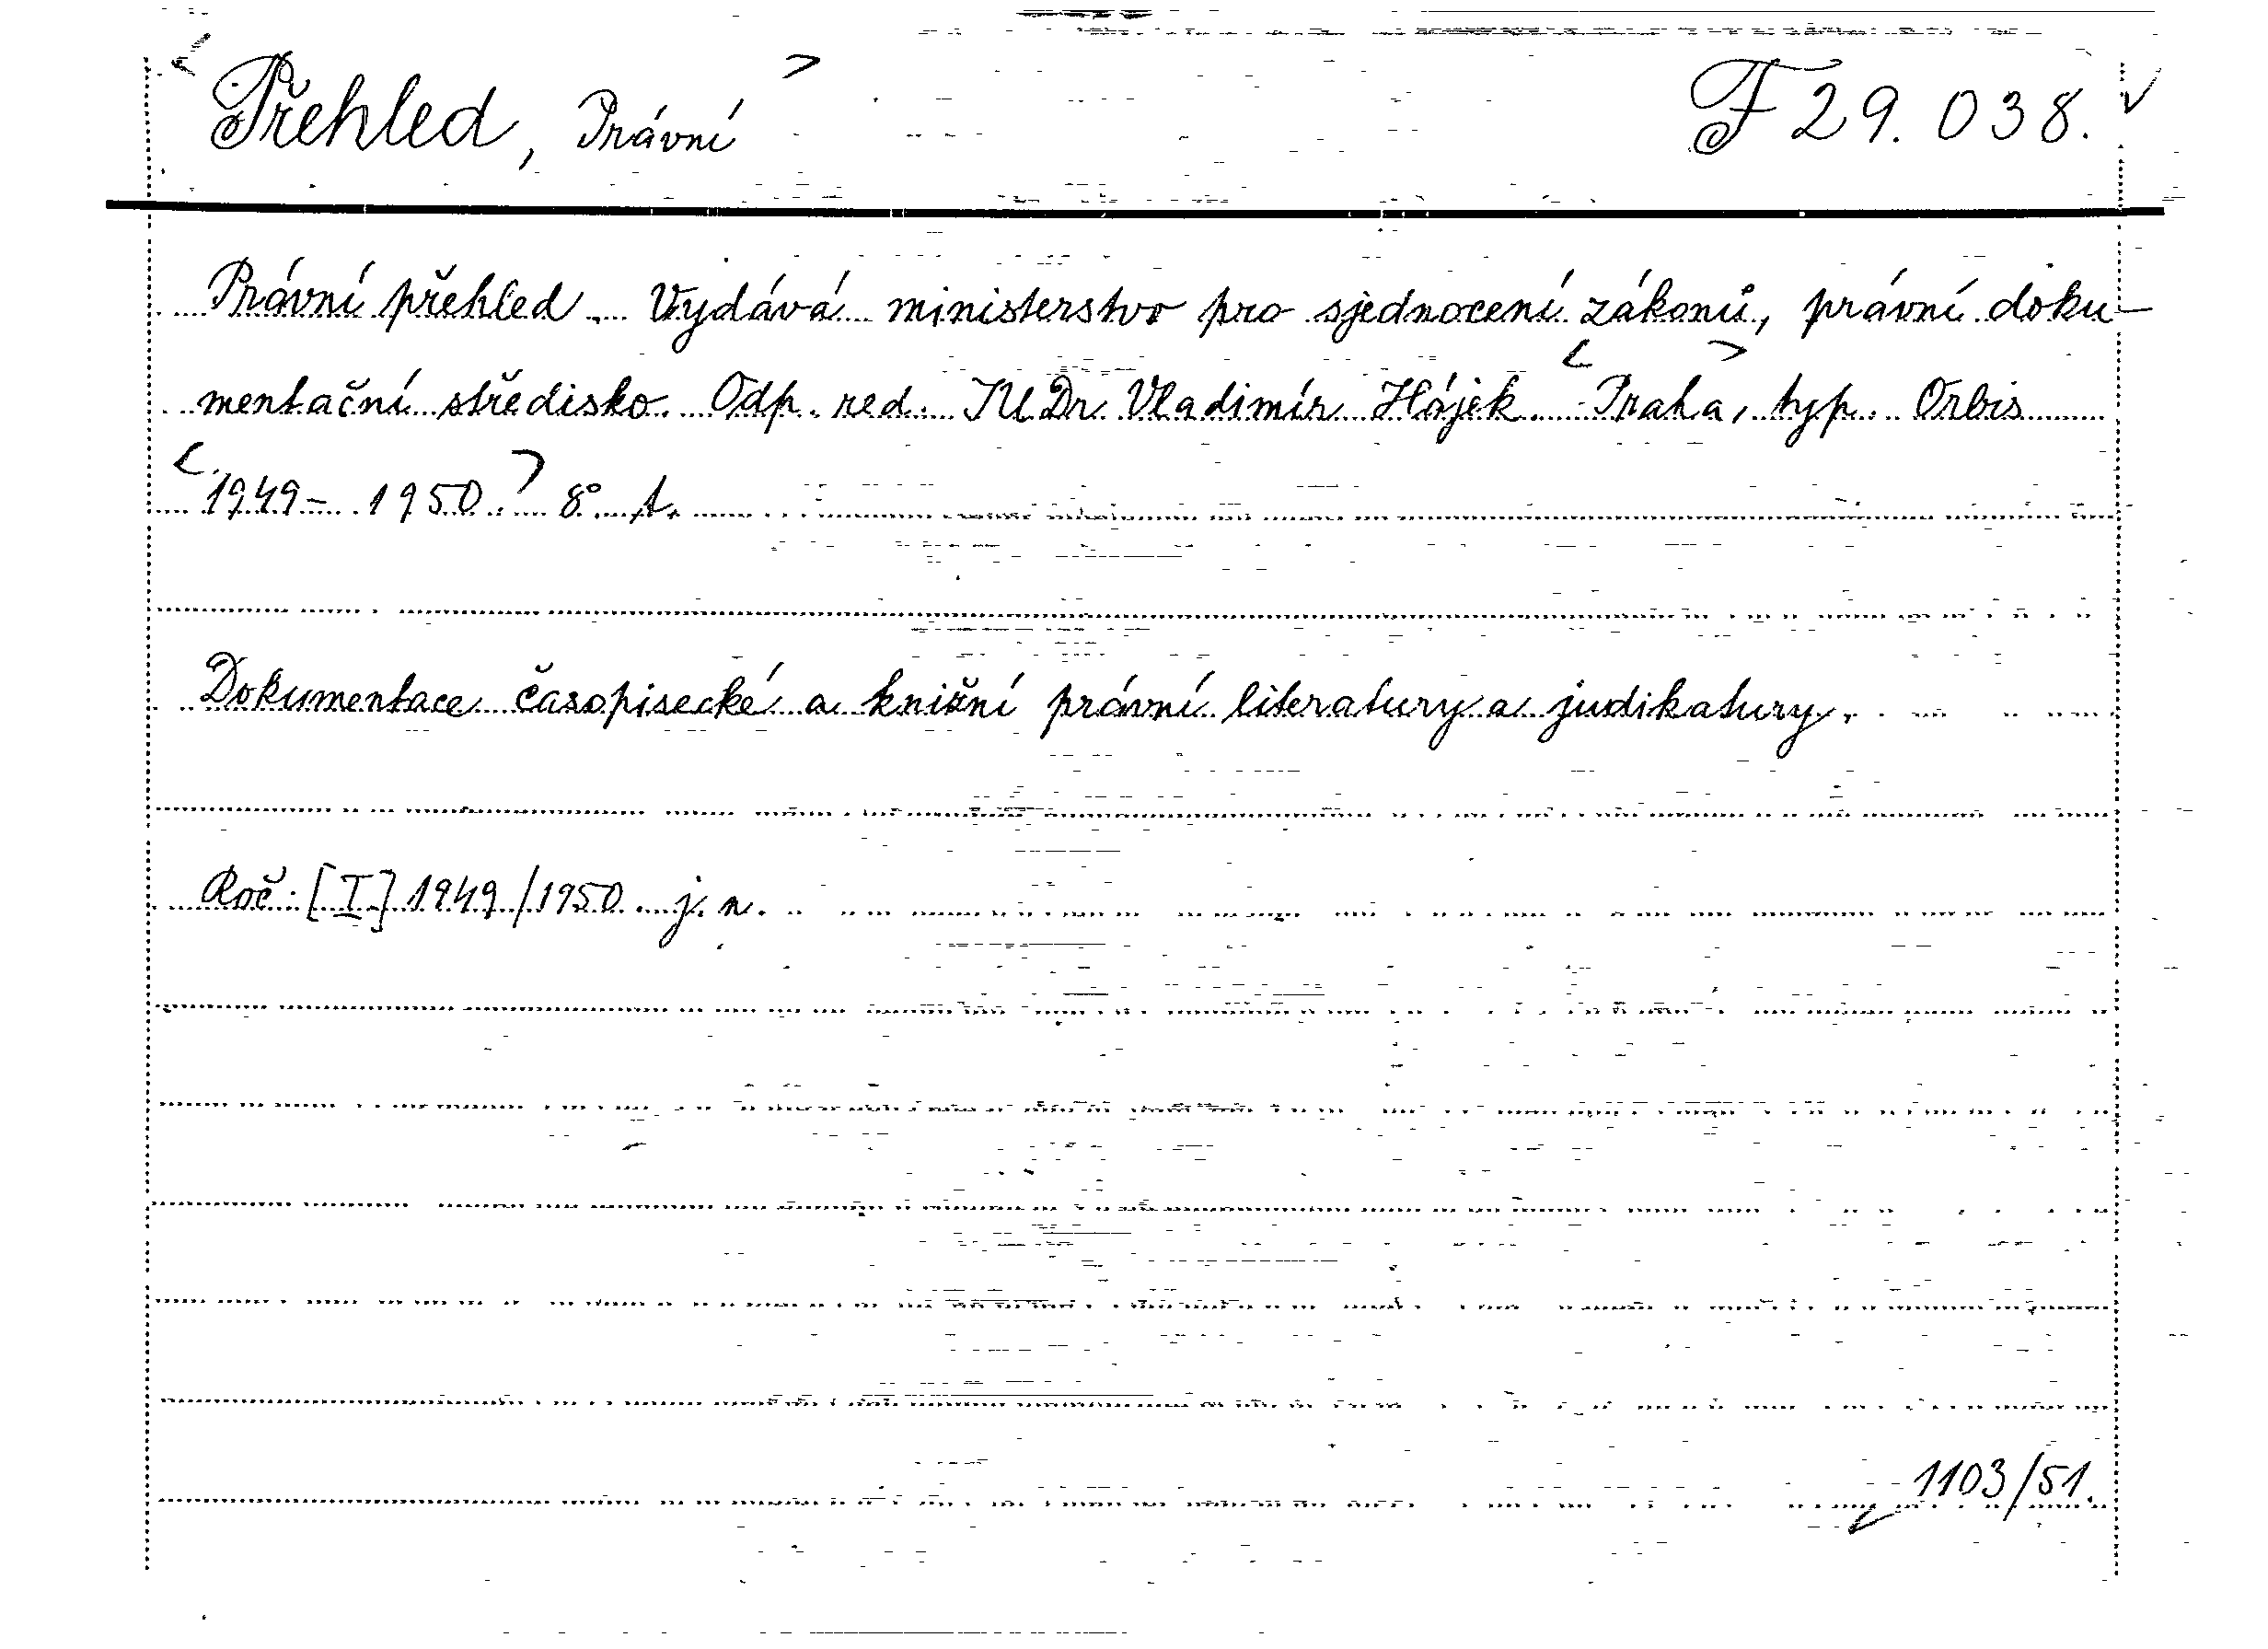 <Přehled, Právní> F 29.038.
Právní přehled. Vydává ministerstvo pro sjednocení zákonů, právní doku-
mentační středisko. Odp. red. JUDr. Vladimír Hájek. <Praha>, typ. Orbis
<1949-1950.> 8° t.
Dokumentace časopisecké a knižní právní literatury a judikatury.
Roč. [I.] 1949/1950. j. n.
1103/51.